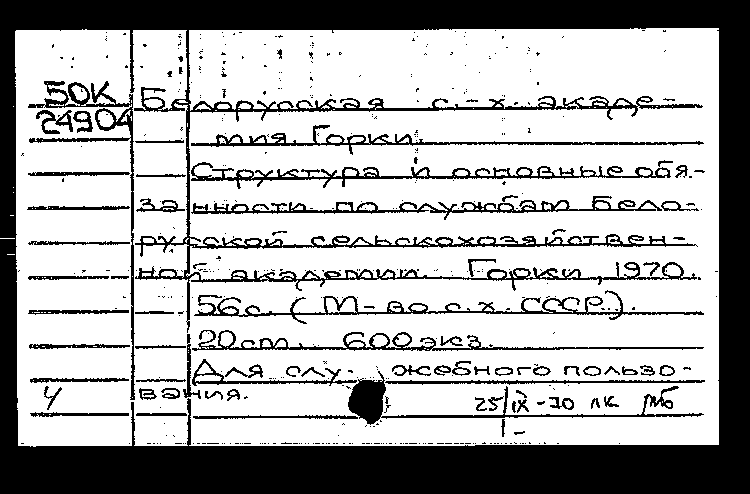 50К Белорусская с.-х. акаде-
24904 мия. Горки.
Структура и основные обя-
занности по службам Бело-
русской сельскохозяйствен-
ной академии. Горки, 1970.
56с. (М-во с.х. СССР).
20см. 600 экз.
Для слу- жебного пользо-
Ч вания. 25/IX-70 лк